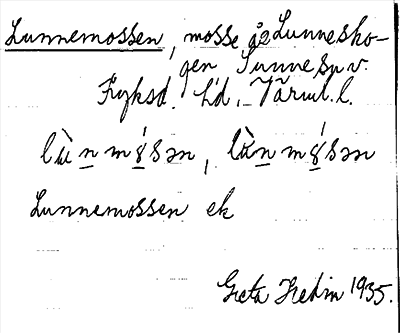 Lunnemossen, mosse på Lunnesko-
gen Sunne sn v.
Fryksd. hd. Värml. l.
lu̇̀n̲mǿ̲sən, lu̇̀n̲mǿ̲sən
Lunnemossen ek
Greta Hedin 1935.